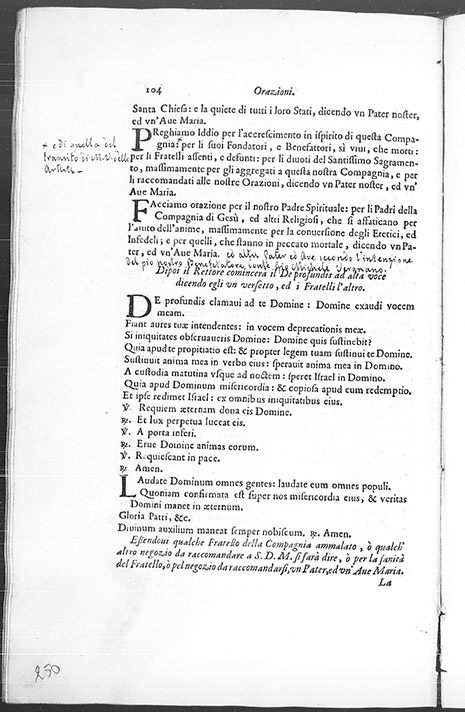 104 Orazioni.
Santa Chiesa: e la quiete di tutti i loro Stati, dicendo vn Pater noster,
ed vn'Aue Maria.
PReghiamo Iddio per l'accrescimento in ispirito di questa Compa-
gnia: + per li suoi Fondatori, e Benefattori, sì viui, che morti:
+ e di quella del
transito di M.V. delle
per li Fratelli assenti, e defunti: per li diuoti del Santissimo Sagramen-
to, massimamente per gli aggregati a questa nostra Compagnia, e per
li raccomandati alle nostre Orazioni, dicendo vn Pater noster, ed vn'
Aue Maria.
FAcciamo orazione per il nostro Padre Spirituale: per li Padri della
Compagnia di Gesù, ed altri Religiosi, che si affaticano per
l'aiuto dell'anime, massimamente per la conuersione degli Eretici, ed
Infedeli; e per quelli, che stanno in peccato mortale, dicendo vn Pa-
ter, ed vn'Aue Maria. ed altro Pater ed Ave secondo l'intenzione
del pio nostro Benefattore Conte Gio Michele
Dipoi il Rettore comincerà il De profundis ad alta voce
dicendo egli vn versetto, ed i Fratelli l'altro.
DE profundis clamaui ad te Domine: Domine exaudi vocem
meam.
Fiant aures tuæ intendentes: in vocem deprecationis meæ.
Si iniquitates obseruaueris Domine: Domine quis sustinebit?
Quia apud te propitiatio est: & propter legem tuam sustinui te Domine.
Sustinuit anima mea in verbo eius: sperauit anima mea in Domino.
A custodia matutina vsque ad noctem: speret Israel in Domino.
Quia apud Dominum misericordia: & copiosa apud eum redemptio.
Et ipse redimet Israel: ex omnibus iniquitatibus eius.
℣. Requiem æternam dona eis Domine.
℞. Et lux perpetua luceat eis.
℣. A porta inferi.
℞. Erue Domine animas eorum.
℣. Requiescant in pace.
℞. Amen.
LAudate Dominum omnes gentes: laudate eum omnes populi.
Quoniam confirmata est super nos misericordia eius, & veritas
Domini manet in æternum.
Gloria Patri, &c.
Diuinum auxilium maneat semper nobiscum. ℞. Amen.
Essendoui qualche Fratello della Compagnia ammalato, ò qualch'
altro negozio da raccomandare a S. D. M. si farà dire, ò per la sanità
del Fratello, ò pel negozio da raccomandarsi, vn Pater, ed vn'Aue Maria.
La
250